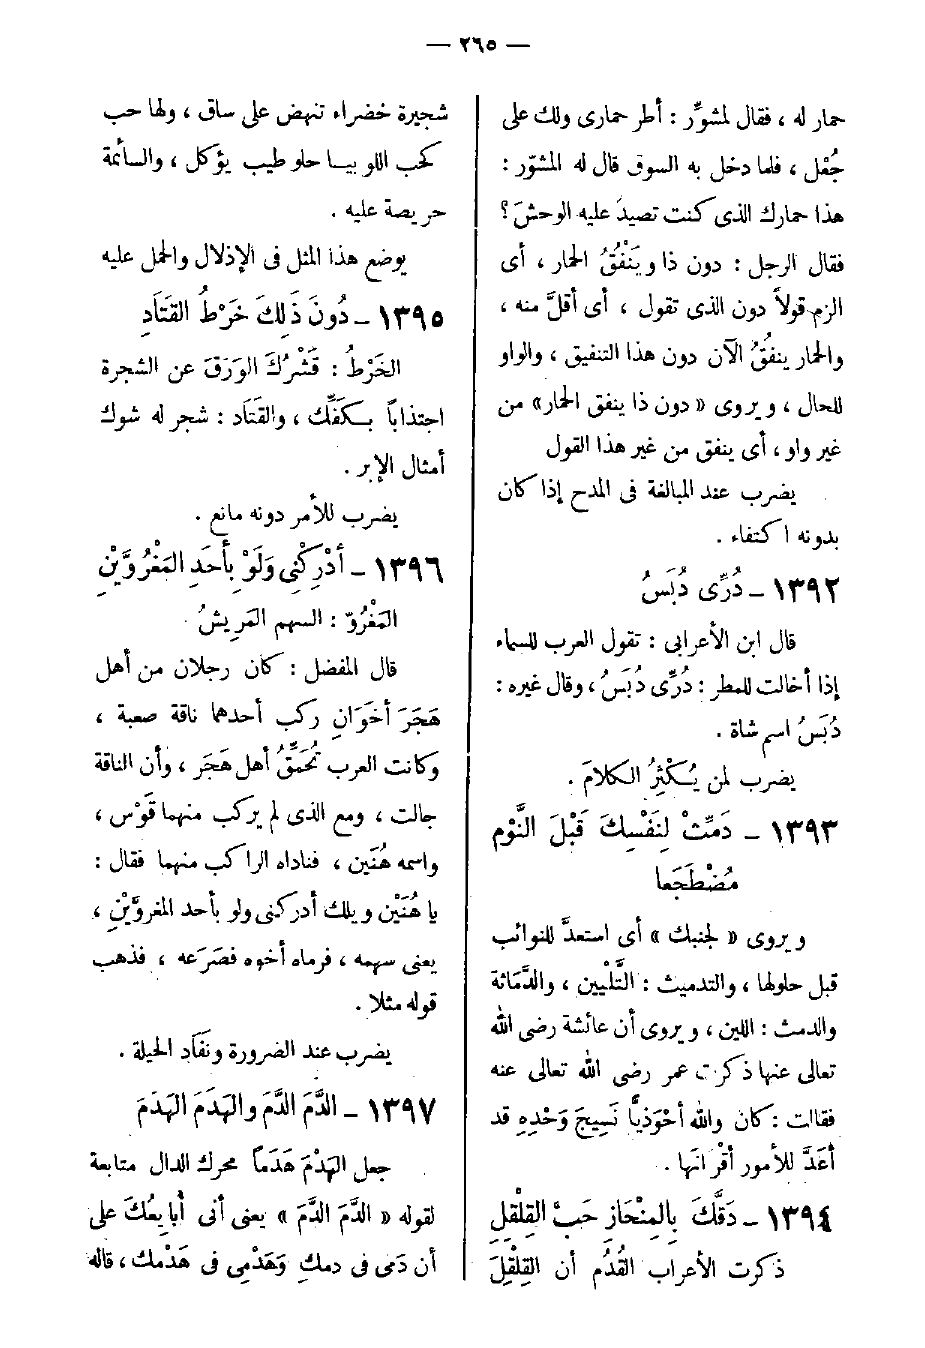 — ٢٦٥ —
حمار له ، فقال لمشوِّر : أطر حمارى ولك على
جُعْل ، فلما دخل به السوق قال له المشوّر :
هذا حمارك الذى كنت تصيدَ عليه الوحشَ ؟
فقال الرجل : دون ذا وينْفُقُ الحمار ، أى
الزم قولاً دون الذى تقول ، أى أقلَّ منه ،
والحمار ينفُقُ الآن دون هذا التنفيق ، والواو
للحال ، ويروى « دون ذا ينفق الحمار» من
غير واو ، أى ينفق من غير هذا القول
يضرب عند المبالغة فى المدح إذا كان
بدونه اكتفاء .
١٣٩٢ – دُرِّى دُبَسُ
قال ابن الأعرابى : تقول العرب للسماء
إذا أخالت للمطر : دُرِّى دُبَسُ ، وقال غيره :
دُبَسُ اسم شاة .
يضرب لمن يُكْثِرُ الكلامَ .
١٣٩٣ – دَمِّثْ لِنَفْسِكَ قَبْلَ النَّوْم
مُضْطَجَعا
ويروى « لجنبك » أى استعدَّ للنوائب
قبل حلولها ، والتدميث : التَّلْيين ، والدَّمَاثة
والدمث : اللين ، ويروى أن عائشة رضى الله
تعالى عنها ذكرت عمر رضى الله تعالى عنه
فقالت : كان والله أحْوَذِيًّا نَسِيجَ وَحْدِهِ قد
أعَدَّ للأمور أقْرَانَها .
١٣٩٤ – دَقَّكَ بِالمِنْحَازِ حَبَّ القِلْقِلِ
ذكرت الأعراب القُدُم أن القِلْقِلَ
شجيرة خضراء تنهض على ساق ، ولها حب
كحب اللوبيا حلو طيب يؤكل ، والسائمة
حريصة عليه .
يوضع هذا المثل فى الإذلال والحمل عليه
١٣٩٥ – دُونَ ذَلِكَ خَرْطُ القَتَادِ
الخَرْطُ : قَشْرُكَ الوَرَقَ عن الشجرة
اجتذاباً بكَفِّك ، والقَتَاد : شجر له شوك
أمثال الإبر .
يضرب للأمر دونه مانع .
١٣٩٦ – أدْرِكْنِى وَلَوْ بِأَحَدِ المَغْرُوَّيْنِ
المَغْرُوّ : السهم المَرِيشُ
قال المفضل : كان رجلان من أهل
هَجَرَ أخَوَانِ ركب أحدهما ناقة صعبة ،
وكانت العرب تُحَمِّقُ أهل هَجَر ، وأن الناقة
جالت ، ومع الذى لم يركب منهما قَوْس ،
واسمه هُنَين ، فناداه الراكب منهما فقال :
يا هُنَيْن ويلك أدركنى ولو بأحد المغروَّيْنِ ،
يعنى سهمه ، فرماه أخوه فصَرَعه ، فذهب
قوله مثلا .
يضرب عند الضرورة ونَفَاد الحيلة .
١٣٩٧ – الدَّمَ الدَّمَ والهَدَمَ الهَدَمَ
جعل الهَدْمَ هَدَماً محرك الدال متابعة
لقوله « الدَّمَ الدَّمَ » يعنى أنى أبايعُكَ على
أن دَمى فى دمك وَهَدْمِى فى هَدْمك ، قاله